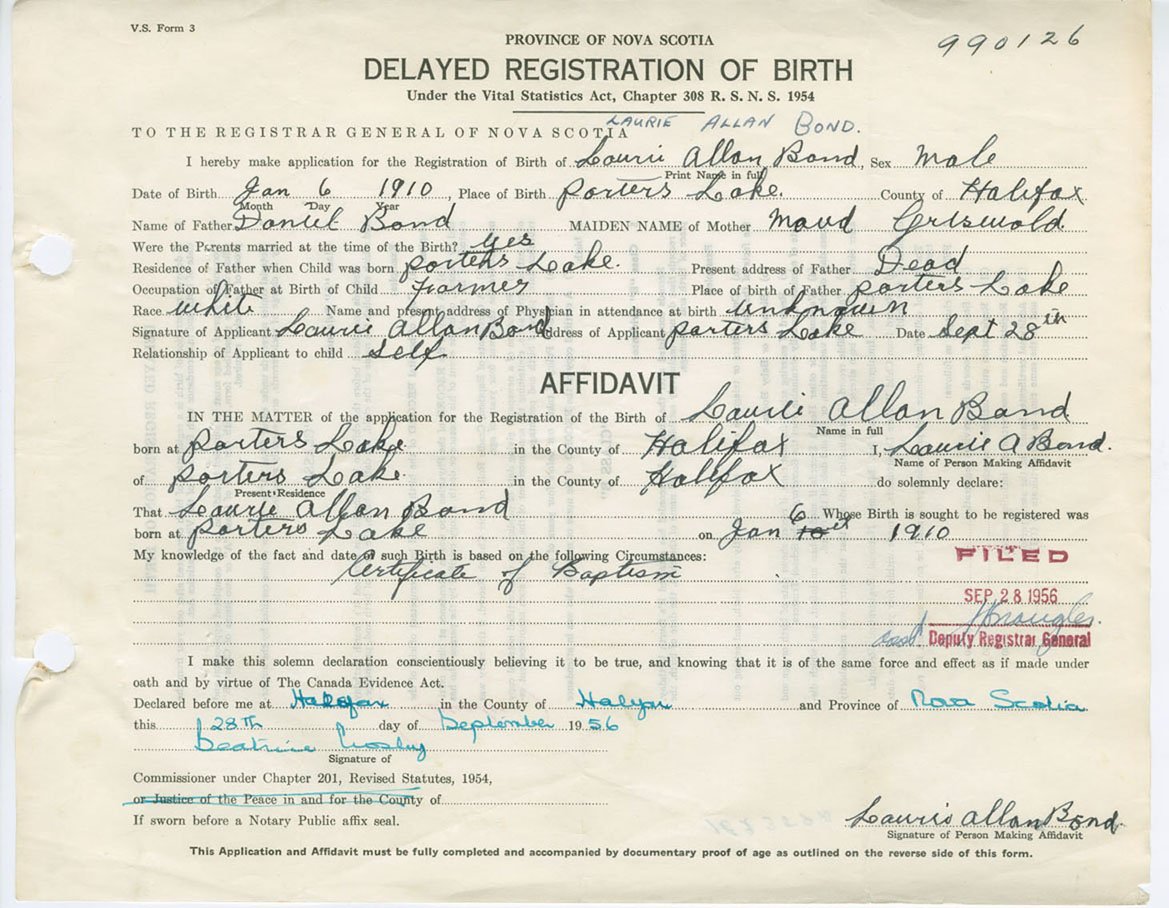 V.S. Form 3
990126
PROVINCE OF NOVA SCOTIA
DELAYED REGISTRATION OF BIRTH
Under the Vital Statistics Act, Chapter 308 R. S. N. S. 1954
LAURIE ALLAN BOND.
TO THE REGISTRAR GENERAL OF NOVA SCOTIA
I hereby make application for the Registration of Birth of Laurie Allan Bond, Sex Male
Print Name in full
Date of Birth Jan 6 1910, Place of Birth Porters Lake. County of Halifax
Month Day Year
Name of Father Daniel Bond MAIDEN NAME of Mother Maud Griswold
Were the Parents married at the time of the Birth? yes
Residence of Father when Child was born porters Lake. Present address of Father Dead
Occupation of Father at Birth of Child Farmer Place of birth of Father porters Lake
Race white Name and present address of Physician in attendance at birth unknown
Signature of Applicant Laurie Allan Bond Address of Applicant porters Lake Date Sept 28th
Relationship of Applicant to child self
AFFIDAVIT
IN THE MATTER of the application for the Registration of the Birth of Laurie Allan Bond
Name in full
born at porters Lake in the County of Halifax I, Laurie A Bond.
Name of Person Making Affidavit
of porters Lake in the County of Halifax do solemnly declare:
Present Residence
That Laurie Allan Bond 6 Whose Birth is sought to be registered was
born at porters Lake on Jan 10th 1910
My knowledge of the fact and date of such Birth is based on the following Circumstances:
Certificate of Baptism
FILED
SEP 28 1956
Deputy Registrar General
I make this solemn declaration conscientiously believing it to be true, and knowing that it is of the same force and effect as if made under
oath and by virtue of The Canada Evidence Act.
Declared before me at Halifax in the County of Halifax and Province of Nova Scotia
this 28TH day of September 1956
Beatrice Crosby
Signature of
Commissioner under Chapter 201, Revised Statutes, 1954,
or Justice of the Peace in and for the County of
If sworn before a Notary Public affix seal.
Laurie Allan Bond.
Signature of Person Making Affidavit
This Application and Affidavit must be fully completed and accompanied by documentary proof of age as outlined on the reverse side of this form.